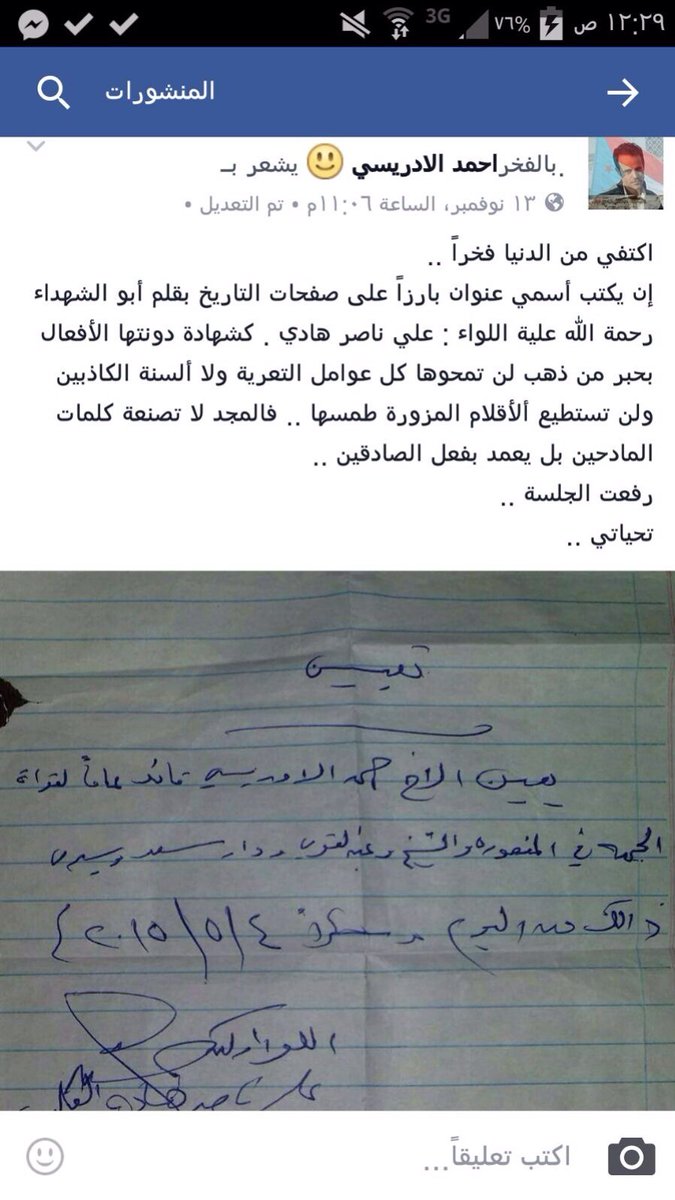 ١٢:٢٩ ص ٧٦% 3G
المنشورات
احمد الادريسي 🙂 يشعر بـ بالفخر.
١٣ نوفمبر، الساعة ١١:٠٦م • تم التعديل •
اكتفي من الدنيا فخراً ..
إن يكتب أسمي عنوان بارزاً على صفحات التاريخ بقلم أبو الشهداء
رحمة الله علية اللواء : علي ناصر هادي . كشهادة دونتها الأفعال
بحبر من ذهب لن تمحوها كل عوامل التعرية ولا ألسنة الكاذبين
ولن تستطيع ألأقلام المزورة طمسها .. فالمجد لا تصنعة كلمات
المادحين بل يعمد بفعل الصادقين ..
رفعت الجلسة ..
تحياتي ..
تعيين
يعين الاخ احمد الادريسي قائد عاماً لقوات
الجبهة في المنصورة والشيخ و دار سعد ويسري
ذالك من اليوم وشكراً ٢٠١٥/٥/٤
اللواء الركن
علي ناصر هادي
اكتب تعليقاً...